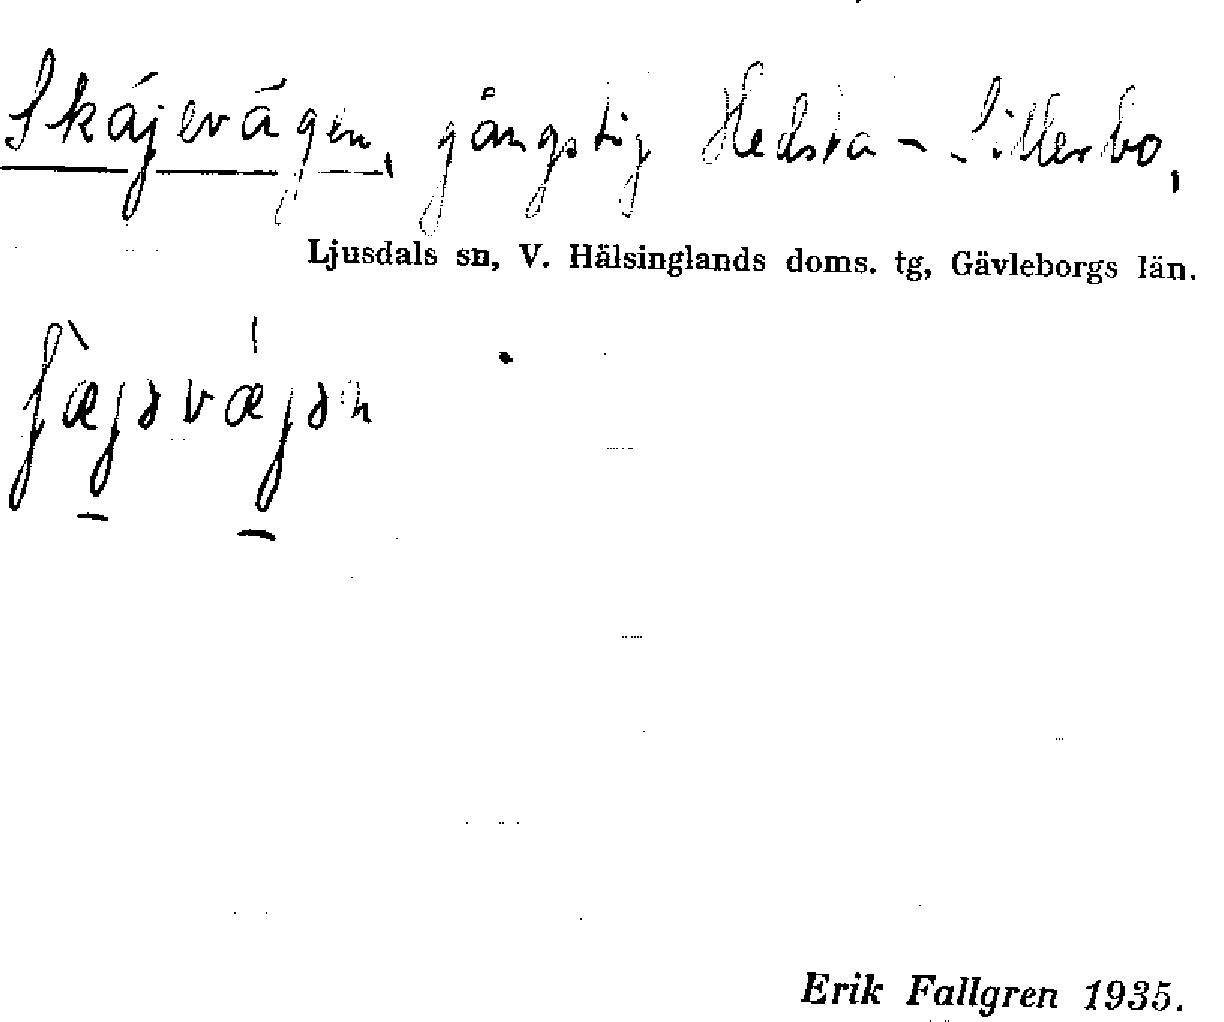 Skäjevägen, gångstig Hedsta - Sillerbo,
Ljusdals sn, V. Hälsinglands doms. tg, Gävleborgs län.
Erik Fallgren 1935.